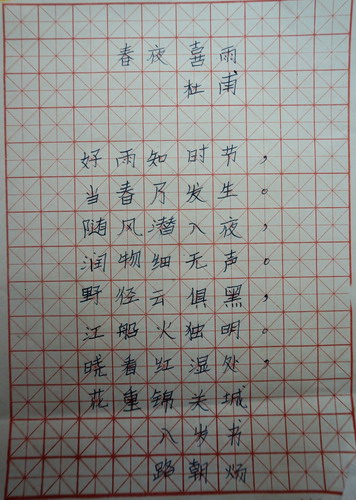 春夜喜雨
杜甫
好雨知时节，
当春乃发生。
随风潜入夜，
润物细无声。
野径云俱黑，
江船火独明。
晓看红湿处，
花重锦关城
八岁书
路朝炀